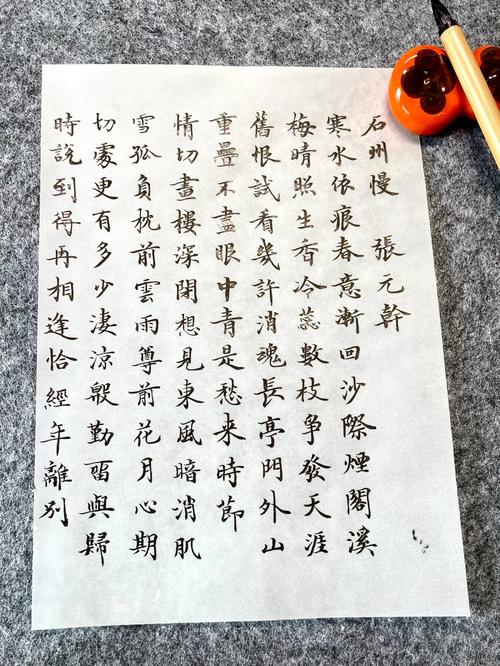 石州慢 張元幹
寒水依痕春意漸回沙際煙閣溪
梅晴照生香冷蕊數枝爭發天涯
舊恨試看幾許消魂長亭門外山
重疊不盡眼中青是愁來時節
情切畫樓深閉想見東風暗消肌
雪孤負枕前雲雨尊前花月心期
切處更有多少淒涼殷勤留與歸
時說到得再相逢恰經年離別